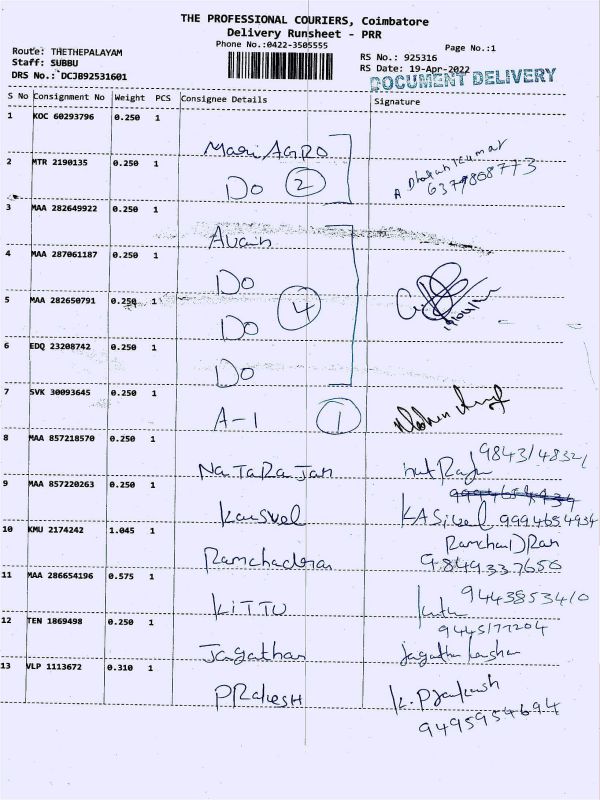 THE PROFESSIONAL COURIERS, Coimbatore
Delivery Runsheet - PRR
Phone No.:0422-3505555
Page No.:1
Route: THETHEPALAYAM
Staff: SUBBU
DRS No.: DCJB92531601
RS No.: 925316
RS Date: 19-Apr-2022
DOCUMENT DELIVERY
S No Consignment No Weight PCS Consignee Details Signature
1 KOC 60293796 0.250 1
Mari AGRO
2 MTR 2190135 0.250 1
Do 2
6379808773
3 MAA 282649922 0.250 1
4 MAA 287061187 0.250 1
Do
5 MAA 282650791 0.250 1
Do 4
6 EDQ 23208742 0.250 1
Do
7 SVK 30093645 0.250 1
A-1 1
8 MAA 857218570 0.250 1
NaTaRaJan
9 MAA 857220263 0.250 1
9994654934
10 KMU 2174242 1.045 1
9849337656
11 MAA 286654196 0.575 1
KiTTU 9443853410
12 TEN 1869498 0.250 1
9445177204
Jagathan
13 VLP 1113672 0.310 1
PRakesH K. Prakash
9495954694